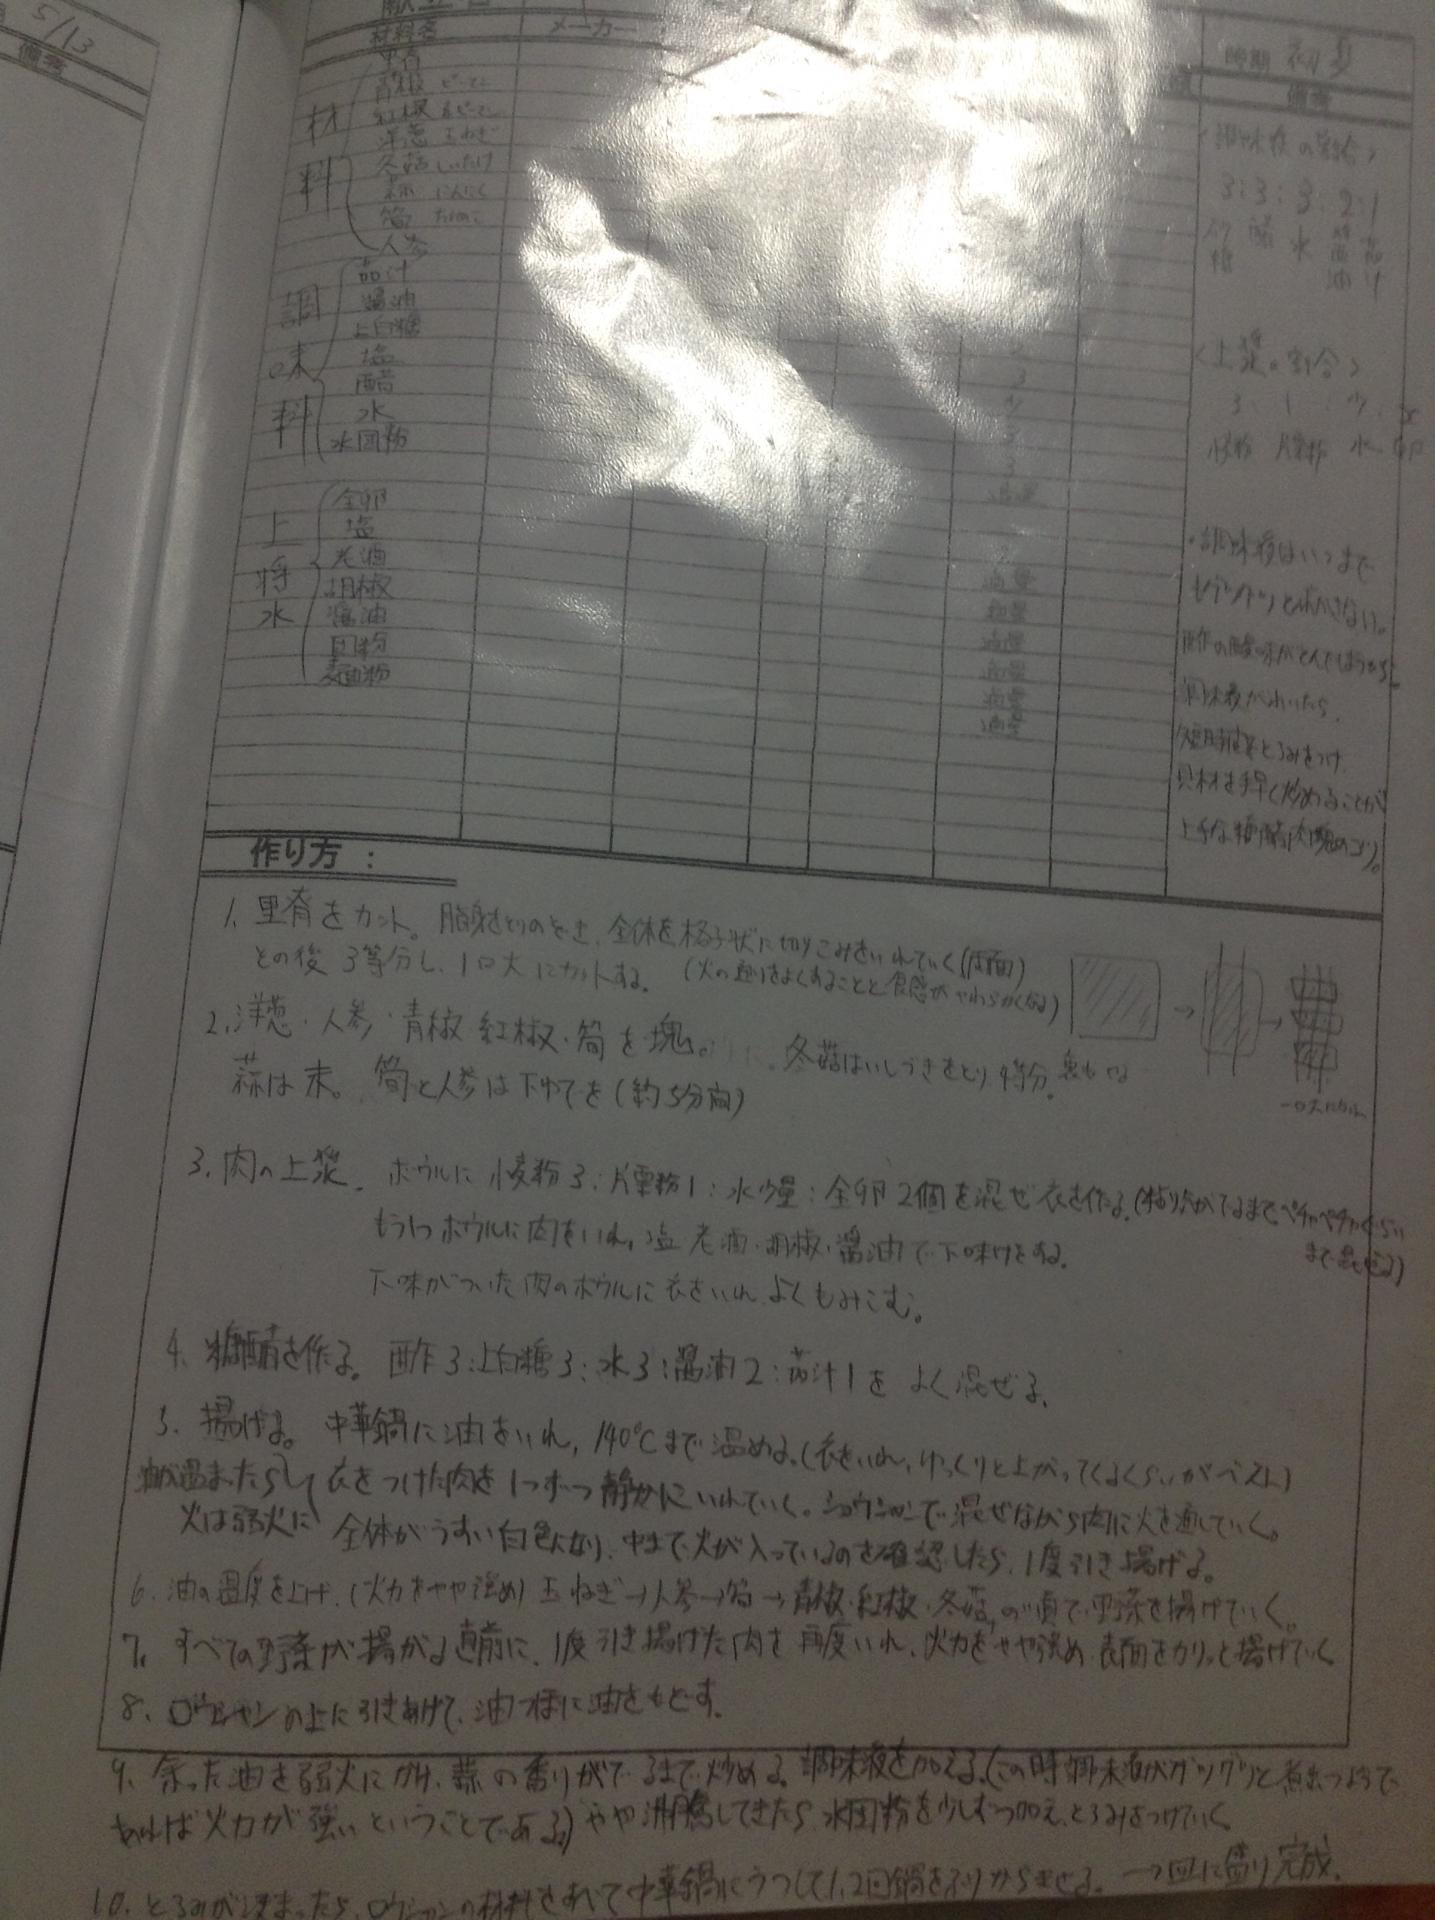 5/13
備考
材料名
メーカー
時期 初夏
備考
材料
青椒 ピーマン
紅椒 赤ピーマン
洋葱 玉ねぎ
冬菇 しいたけ
蒜 にんにく
筍 たけのこ
人参
調味料
茄汁
醤油
上白糖
塩
醋
水
水団粉
上将水
全卵
塩
老酒
胡椒
醤油
団粉
麺粉
適量
適量
適量
適量
適量
適量
適量
<調味液の割合>
3:3:3:2:1
砂糖 醋 水 醤油 茄汁
<上漿の割合>
小麦粉 片栗粉 水 卵
・調味液はいつまで
もグツグツと沸かさない。
酢の酸味がとんでしまうから。
調味液がわいたら、
短時間でとろみをつけ、
具材を手早く炒めることが
上手な糖醋肉塊のコツ。
作り方:
1. 里脊をカット。脂身をとりのぞき、全体を格子状に切りこみをいれていく(両面)
その後 3等分し、1口大にカットする。(火の通りをよくすることと食感がやわらかくなる)
一口大にカット
2. 洋葱・人参・青椒 紅椒・筍を塊。冬菇はいしづきをとり 4等分。
蒜は末。筍と人参は下ゆでを(約5分間)
3. 肉の上漿。ボウルに 小麦粉3:片栗粉1:水少量:全卵2個を混ぜ衣を作る。(粘りけがでるまでペチャペチャぐらい
まで混ぜる)
もう1つボウルに肉をいれ、塩 老酒・胡椒・醤油で下味けをする。
下味がついた肉のボウルに衣をいれ、よくもみこむ。
4. 糖醋を作る。酢3:上白糖3:水3:醤油2:茄汁1を よく混ぜる。
5. 揚げる。中華鍋に油をいれ、140℃まで温める。(衣をいれ、ゆっくりと上がってくるくらいがベスト)
油が温まったら 衣をつけた肉を1つずつ静かにいれていく。ショウシャンで混ぜながら肉に火を通していく。
火は弱火に 全体がうすい白色になり、中まで火が入っているのを確認したら、1度引き揚げる。
6. 油の温度を上げ、(火力をやや強め)玉ねぎ→人参→筍→青椒・紅椒・冬菇、の順で野菜を揚げていく。
7. すべての野菜が揚がる直前に、1度引き揚げた肉を再度いれ、火力をやや強め 表面をカリッと揚げていく
8. ロウシャンの上に引きあげて、油様に油をもどす。
9. 余った油を弱火にかけ、蒜の香りがでるまで炒める。調味液を加える。(この時調味液がグツグツと煮立つようで
あれば火力が強いということである) やや沸騰してきたら 水団粉を少しずつ加え、とろみをつけていく
10. とろみが決まったら、ロウシャンの材料をあけて 中華鍋にうつして1、2回鍋をふりからませる。→皿に盛り完成。